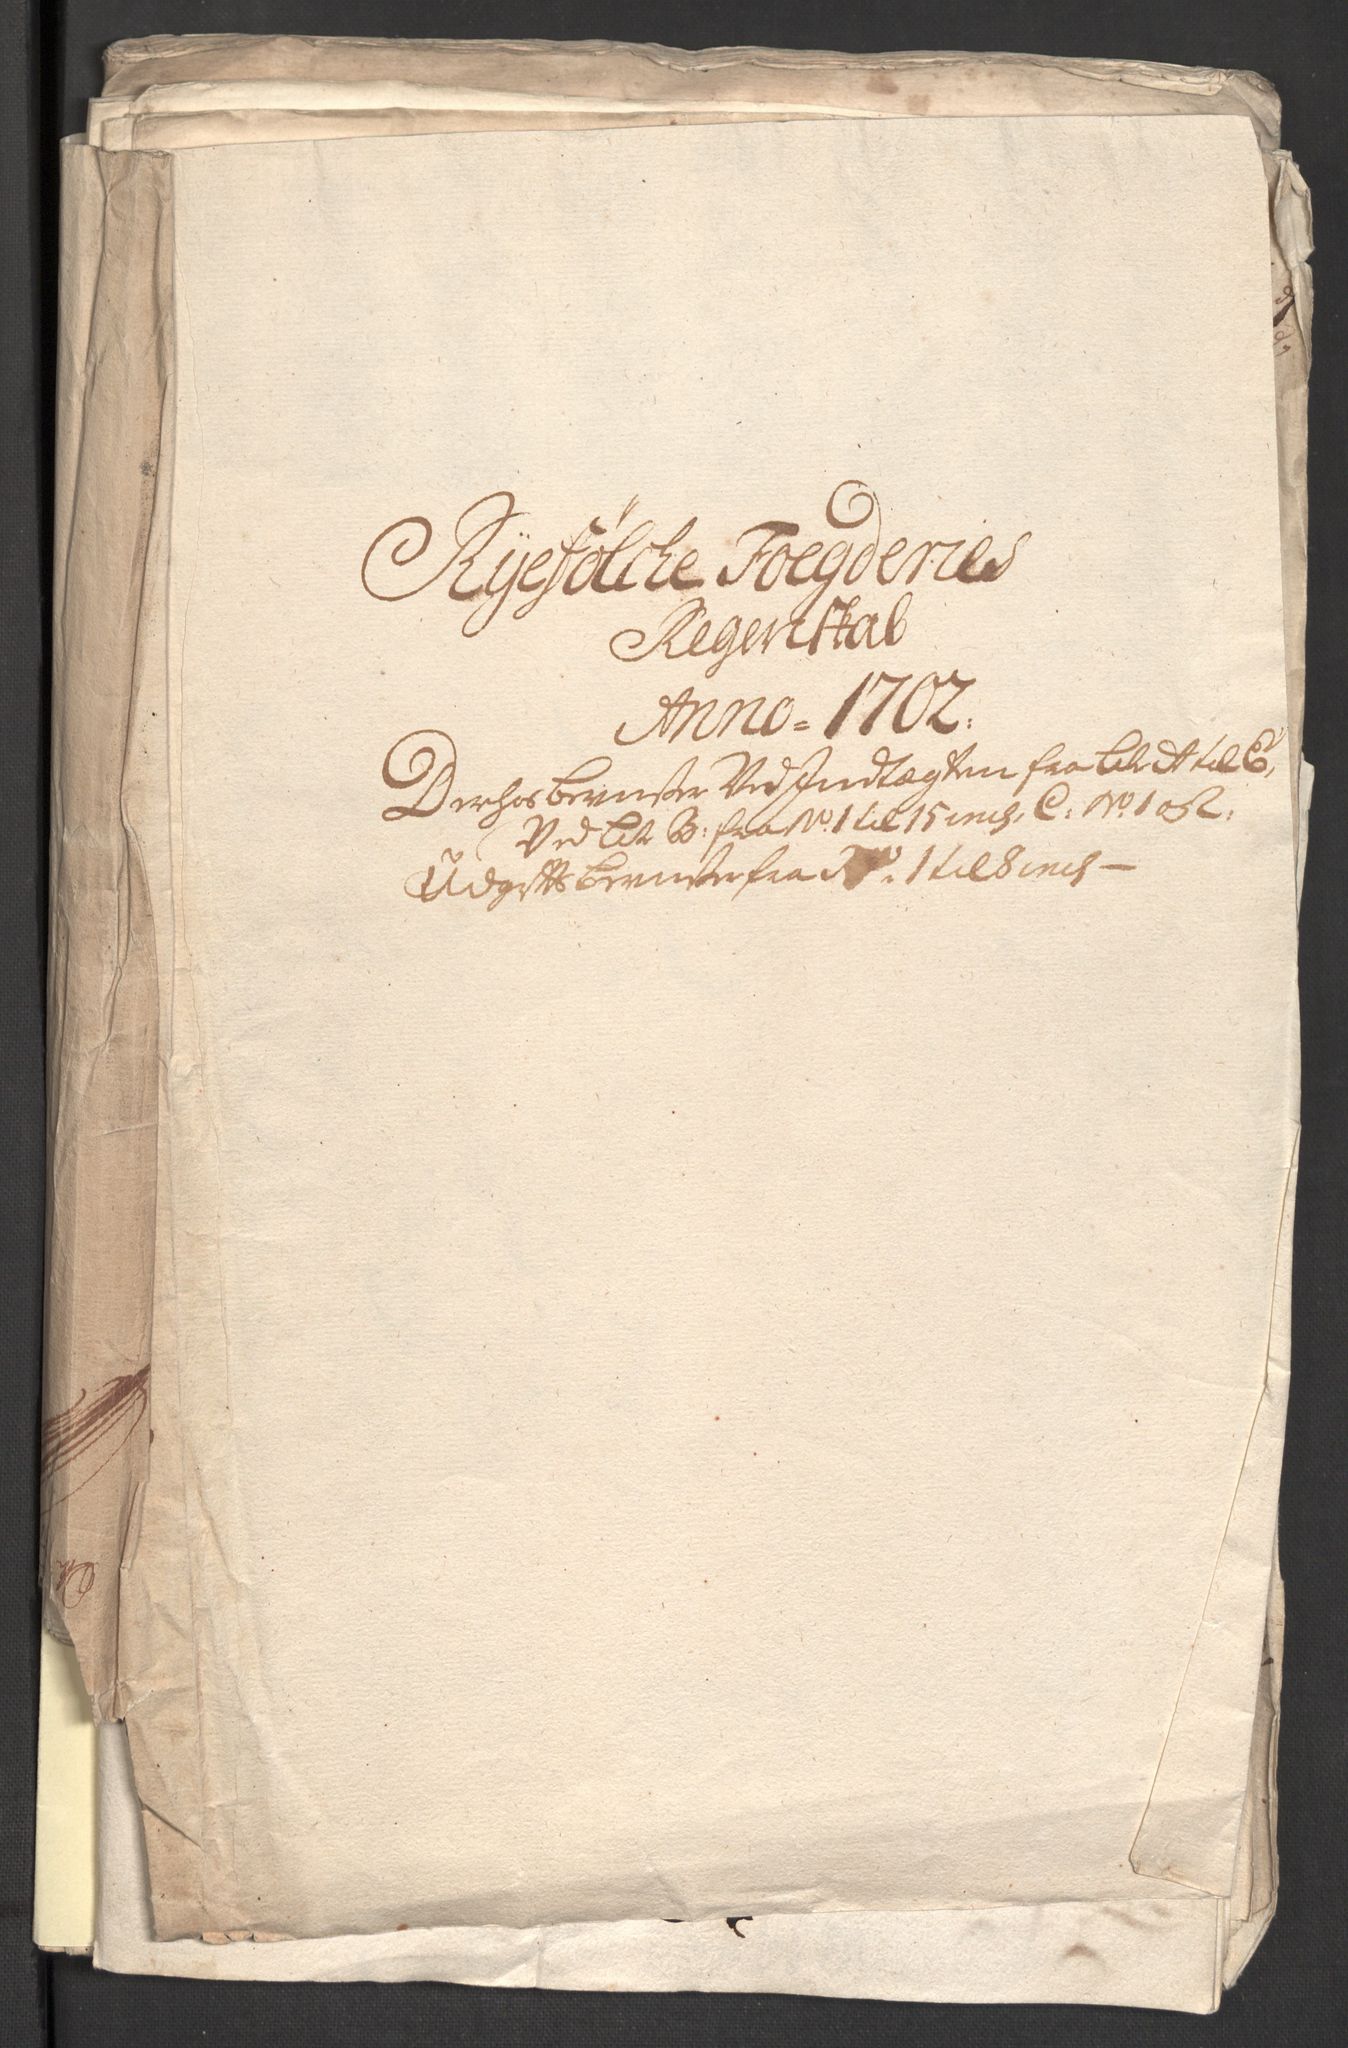 Ryefölcke Foegderies
Regenskab
Anno = 1702.
Derhos beviiser Ved Indtægten fra Litr A til E,
Ved Litr B: fra No. 1 til 15 incl, C: No. 1 os 2:
Udgiffts beviiser fra No. 1 til 8 incl —